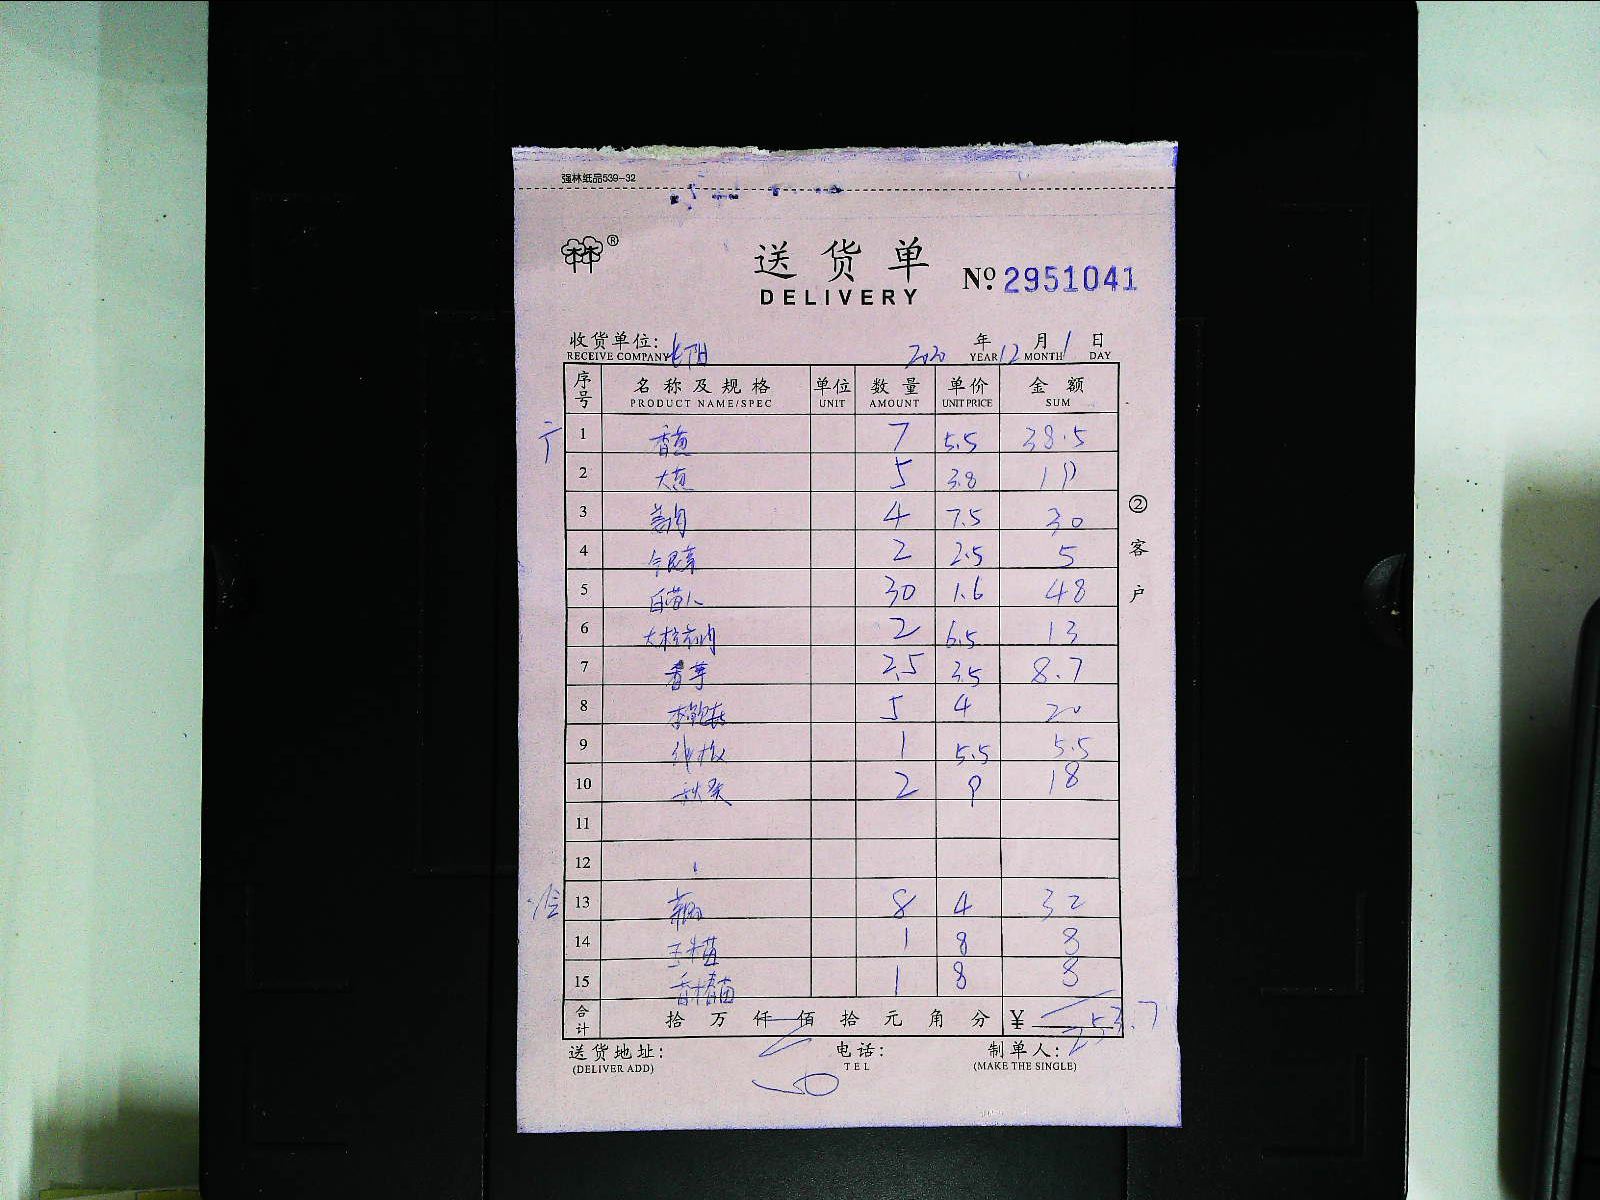 强林纸品539-32
林林®
送货单
DELIVERY
Nº 2951041
收货单位: RECEIVE COMPANY
2020 年 YEAR 12 月 MONTH 1 日 DAY
序号 名称及规格 PRODUCT NAME/SPEC 单位 UNIT 数量 AMOUNT 单价 UNIT PRICE 金额 SUM
1 香葱 7 5.5 38.5
2 大葱 5 3.8 19
3 姜肉 4 7.5 30
4 2 2.5 5
5 30 1.6 48
6 2 6.5 13
7 香芋 2.5 3.5 8.7
8 5 4 20
9 1 5.5 5.5
10 秋葵 2 9 18
11
12
13 8 4 32
14 玉米苗 1 8 8
15 香椿苗 1 8 8
合计 拾 万 仟 佰 拾 元 角 分 ¥ 253.7
② 客户
送货地址: (DELIVER ADD) 电话: TEL 制单人: (MAKE THE SINGLE)